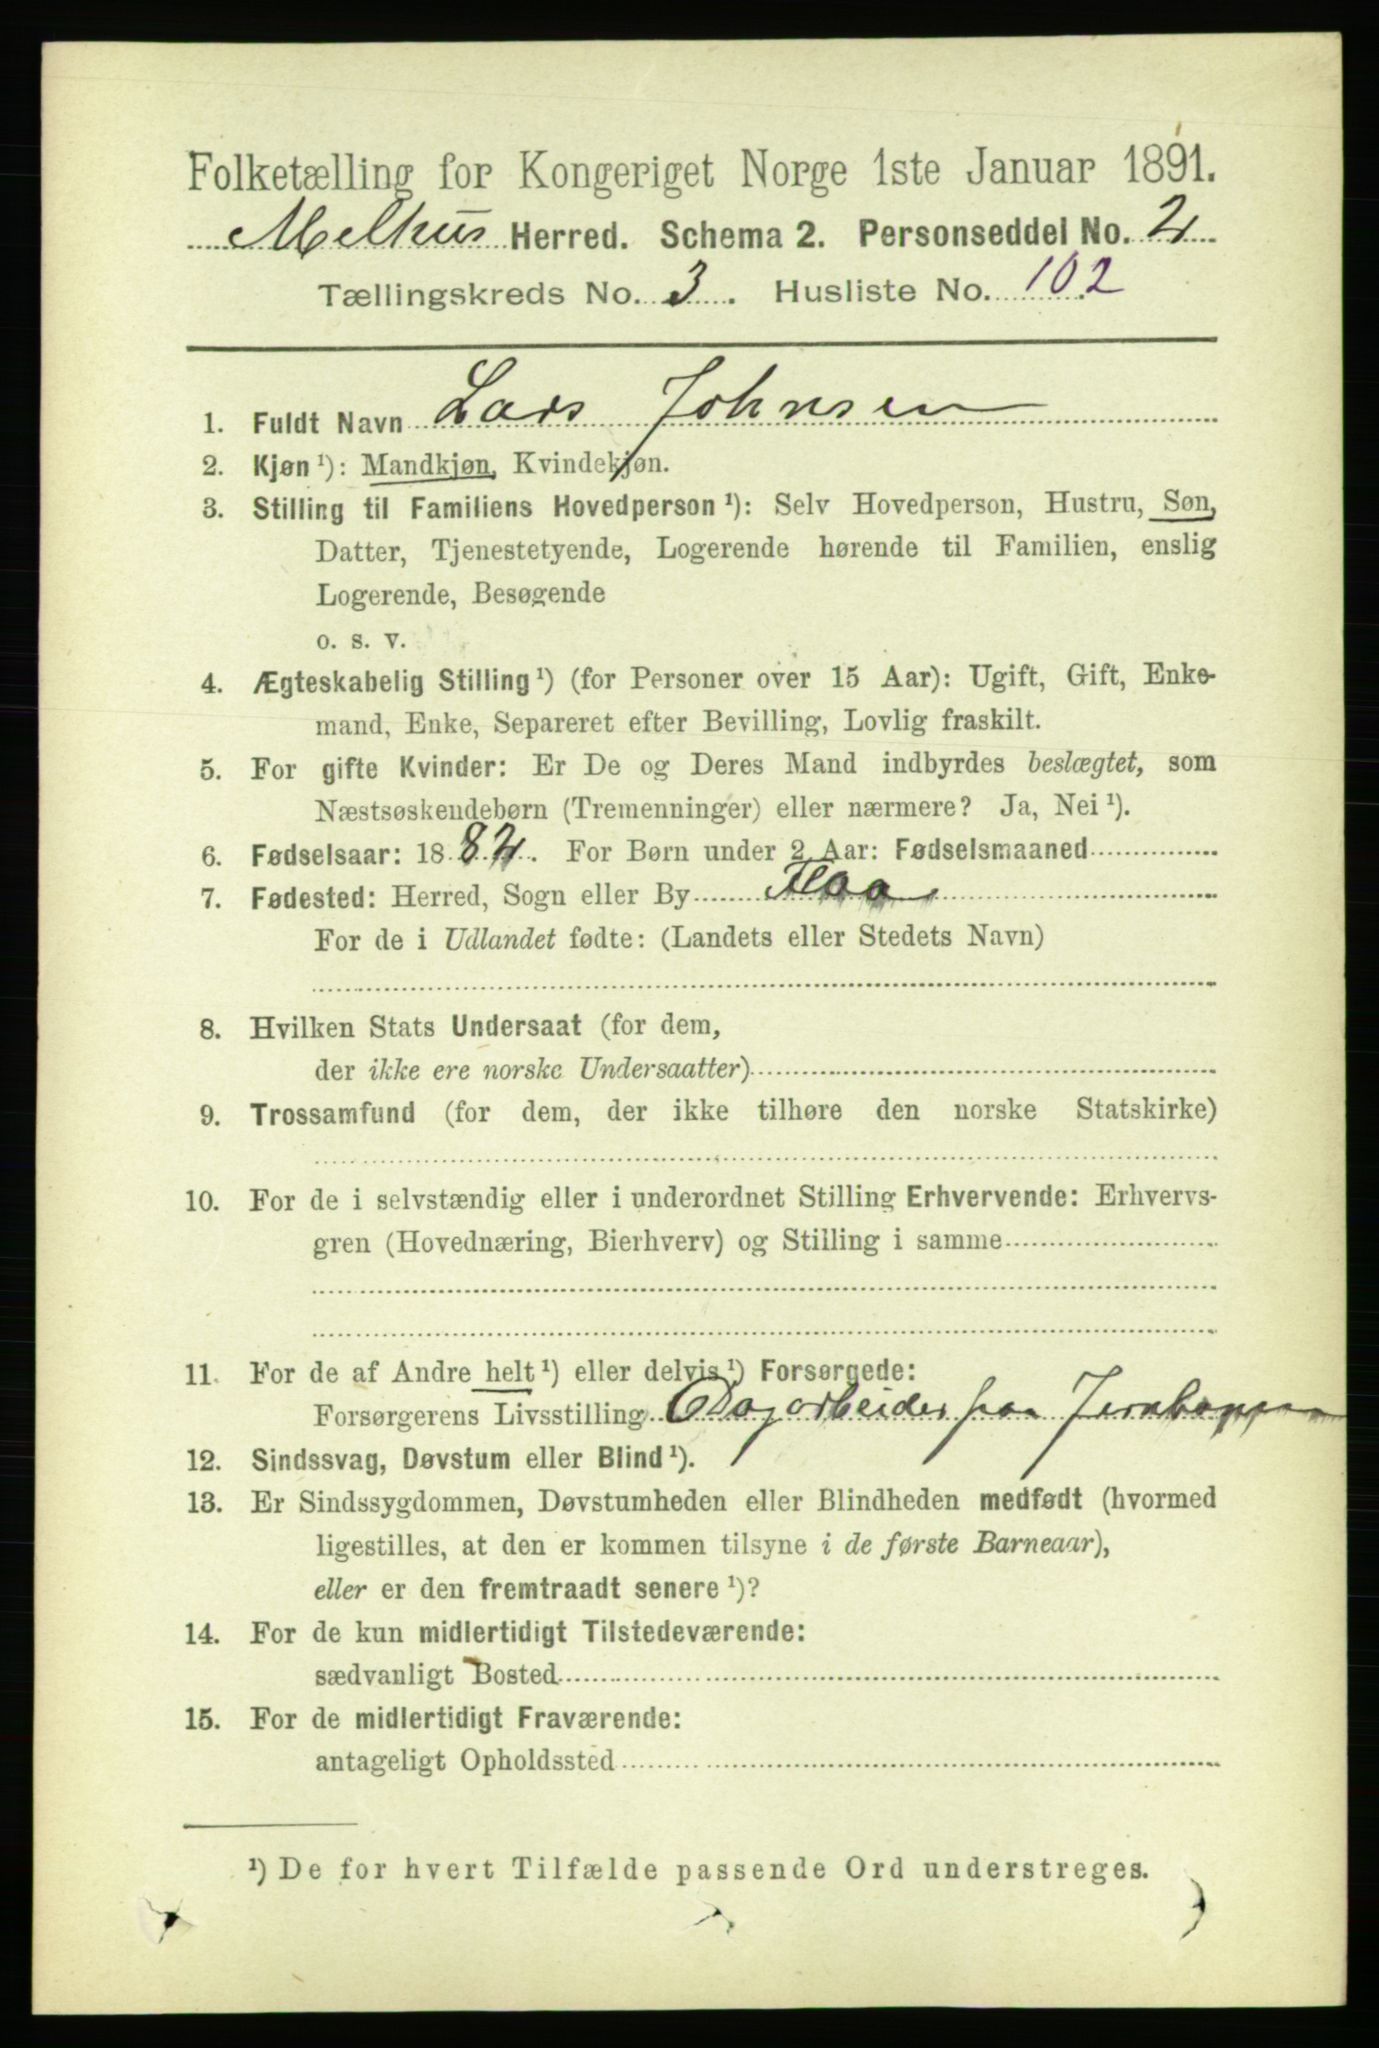 Folketælling for Kongeriget Norge 1ste Januar 1891.
Melhus Herred. Schema 2. Personseddel No. 4
Tællingskreds No. 3. Husliste No. 102
1. Fuldt Navn Lars Johnsen
2. Kjøn ¹): Mandkjøn, Kvindekjøn.
3. Stilling til Familiens Hovedperson ¹): Selv Hovedperson, Hustru, Søn,
Datter, Tjenestetyende, Logerende hørende til Familien, enslig
Logerende, Besøgende
o. s. v.
4. Ægteskabelig Stilling ¹) (for Personer over 15 Aar): Ugift, Gift, Enke-
mand, Enke, Separeret efter Bevilling, Lovlig fraskilt.
5. For gifte Kvinder: Er De og Deres Mand indbyrdes beslægtet, som
Næstsøskendebørn (Tremenninger) eller nærmere? Ja, Nei ¹).
6. Fødselsaar: 1884. For Børn under 2 Aar: Fødselsmaaned
7. Fødested: Herred, Sogn eller By Flaa
For de i Udlandet fødte: (Landets eller Stedets Navn)
8. Hvilken Stats Undersaat (for dem,
der ikke ere norske Undersaatter)
9. Trossamfund (for dem, der ikke tilhøre den norske Statskirke)
10. For de i selvstændig eller i underordnet Stilling Erhvervende: Erhvervs-
gren (Hovednæring, Bierhverv) og Stilling i samme
11. For de af Andre helt ¹) eller delvis ¹) Forsørgede:
Forsørgerens Livsstilling Dagarbeider paa Jernbanen
12. Sindssvag, Døvstum eller Blind ¹).
13. Er Sindssygdommen, Døvstumheden eller Blindheden medfødt (hvormed
ligestilles, at den er kommen tilsyne i de første Barneaar),
eller er den fremtraadt senere ¹)?
14. For de kun midlertidigt Tilstedeværende:
sædvanligt Bosted
15. For de midlertidigt Fraværende:
antageligt Opholdssted
¹) De for hvert Tilfælde passende Ord understreges.